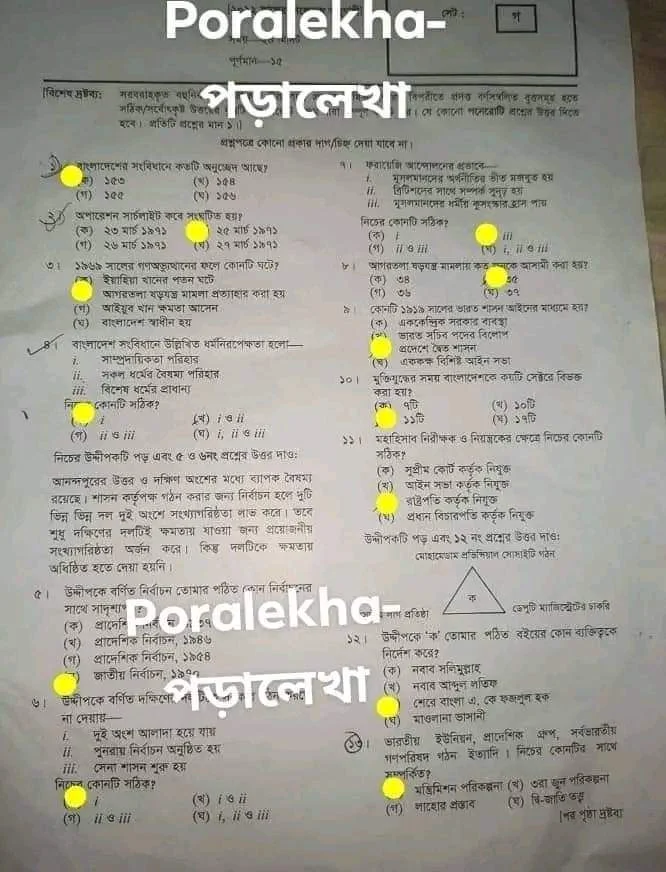 Poralekha-
পড়ালেখা
সেট :
গ
পূর্ণমান—১৫
[বিশেষ দ্রষ্টব্য: সরবরাহকৃত বহুনি
বিপরীতে প্রদত্ত বর্ণসম্বলিত বৃত্তসমূহ হতে
সঠিক/সর্বোৎকৃষ্ট উত্তরের
যে কোনো পনেরোটি প্রশ্নের উত্তর দিতে
হবে। প্রতিটি প্রশ্নের মান ১।]
প্রশ্নপত্রে কোনো প্রকার দাগ/চিহ্ন দেয়া যাবে না।
১। বাংলাদেশের সংবিধানে কতটি অনুচ্ছেদ আছে?
(ক) ১৫৩ (খ) ১৫৪
(গ) ১৫৫ (ঘ) ১৫৬
২। অপারেশন সার্চলাইট কবে সংঘটিত হয়?
(ক) ২৩ মার্চ ১৯৭১ ২৫ মার্চ ১৯৭১
(গ) ২৬ মার্চ ১৯৭১ (ঘ) ২৭ মার্চ ১৯৭১
৩। ১৯৬৯ সালের গণঅভ্যুত্থানের ফলে কোনটি ঘটে?
(ক) ইয়াহিয়া খানের পতন ঘটে
আগরতলা ষড়যন্ত্র মামলা প্রত্যাহার করা হয়
(গ) আইয়ুব খান ক্ষমতা আসেন
(ঘ) বাংলাদেশ স্বাধীন হয়
৪। বাংলাদেশ সংবিধানে উল্লিখিত ধর্মনিরপেক্ষতা হলো—
i. সাম্প্রদায়িকতা পরিহার
ii. সকল ধর্মের বৈষম্য পরিহার
iii. বিশেষ ধর্মের প্রাধান্য
কোনটি সঠিক?
i (খ) i ও ii
(গ) ii ও iii (ঘ) i, ii ও iii
নিচের উদ্দীপকটি পড় এবং ৫ ও ৬নং প্রশ্নের উত্তর দাও:
আনন্দপুরের উত্তর ও দক্ষিণ অংশের মধ্যে ব্যাপক বৈষম্য
রয়েছে। শাসন কর্তৃপক্ষ গঠন করার জন্য নির্বাচন হলে দুটি
ভিন্ন ভিন্ন দল দুই অংশে সংখ্যাগরিষ্ঠতা লাভ করে। তবে
শুধু দক্ষিণের দলটিই ক্ষমতায় যাওয়া জন্য প্রয়োজনীয়
সংখ্যাগরিষ্ঠতা অর্জন করে। কিন্তু দলটিকে ক্ষমতায়
অধিষ্ঠিত হতে দেয়া হয়নি।
৫। উদ্দীপকে বর্ণিত নির্বাচন তোমার পঠিত কোন নির্বাচনের
সাথে সাদৃশ্যপ
(ক) প্রাদেশি
(খ) প্রাদেশিক নির্বাচন, ১৯৪৬
(গ) প্রাদেশিক নির্বাচন, ১৯৫৪
জাতীয় নির্বাচন, ১৯৭০
৬। উদ্দীপকে বর্ণিত দক্ষিণে
না দেয়ায়—
i. দুই অংশ আলাদা হয়ে যায়
ii. পুনরায় নির্বাচন অনুষ্ঠিত হয়
iii. সেনা শাসন শুরু হয়
নিচের কোনটি সঠিক?
i (খ) i ও ii
(গ) ii ও iii (ঘ) i, ii ও iii
৭। ফরায়েজি আন্দোলনের প্রভাবে—
i. মুসলমানদের অর্থনীতির ভীত মজবুত হয়
ii. ব্রিটিশদের সাথে সম্পর্ক সুদৃঢ় হয়
iii. মুসলমানদের ধর্মীয় কুসংস্কার হ্রাস পায়
নিচের কোনটি সঠিক?
(ক) i iii
(গ) ii ও iii (ঘ) i, ii ও iii
৮। আগরতলা ষড়যন্ত্র মামলায় কত জনকে আসামী করা হয়?
(ক) ৩৪ ৩৫
(গ) ৩৬ (ঘ) ৩৭
৯। কোনটি ১৯১৯ সালের ভারত শাসন আইনের মাধ্যমে হয়?
(ক) এককেন্দ্রিক সরকার ব্যবস্থা
(খ) ভারত সচিব পদের বিলোপ
প্রদেশে দ্বৈত শাসন
(ঘ) এককক্ষ বিশিষ্ট আইন সভা
১০। মুক্তিযুদ্ধের সময় বাংলাদেশকে কয়টি সেক্টরে বিভক্ত
করা হয়?
(ক) ৭টি (খ) ১০টি
১১টি (ঘ) ১৭টি
১১। মহাহিসাব নিরীক্ষক ও নিয়ন্ত্রকের ক্ষেত্রে নিচের কোনটি
সঠিক?
(ক) সুপ্রীম কোর্ট কর্তৃক নিযুক্ত
(খ) আইন সভা কর্তৃক নিযুক্ত
রাষ্ট্রপতি কর্তৃক নিযুক্ত
(ঘ) প্রধান বিচারপতি কর্তৃক নিযুক্ত
উদ্দীপকটি পড় এবং ১২ নং প্রশ্নের উত্তর দাও:
মোহামেডান প্রভিন্সিয়াল সোসাইটি গঠন
ক
লীগ প্রতিষ্ঠা
ডেপুটি ম্যাজিস্ট্রেটের চাকরি
১২। উদ্দীপকে 'ক' তোমার পঠিত বইয়ের কোন ব্যক্তিত্বকে
নির্দেশ করে?
(ক) নবাব সলিমুল্লাহ
(খ) নবাব আব্দুল লতিফ
শেরে বাংলা এ. কে ফজলুল হক
(ঘ) মাওলানা ভাসানী
১৩। ভারতীয় ইউনিয়ন, প্রাদেশিক গ্রুপ, সর্বভারতীয়
গণপরিষদ গঠন ইত্যাদি। নিচের কোনটির সাথে
সম্পর্কিত?
মন্ত্রিমিশন পরিকল্পনা (খ) ৩রা জুন পরিকল্পনা
(গ) লাহোর প্রস্তাব (ঘ) দ্বি-জাতি তত্ত্ব
[পর পৃষ্ঠা দ্রষ্টব্য
Poralekha-
পড়ালেখা